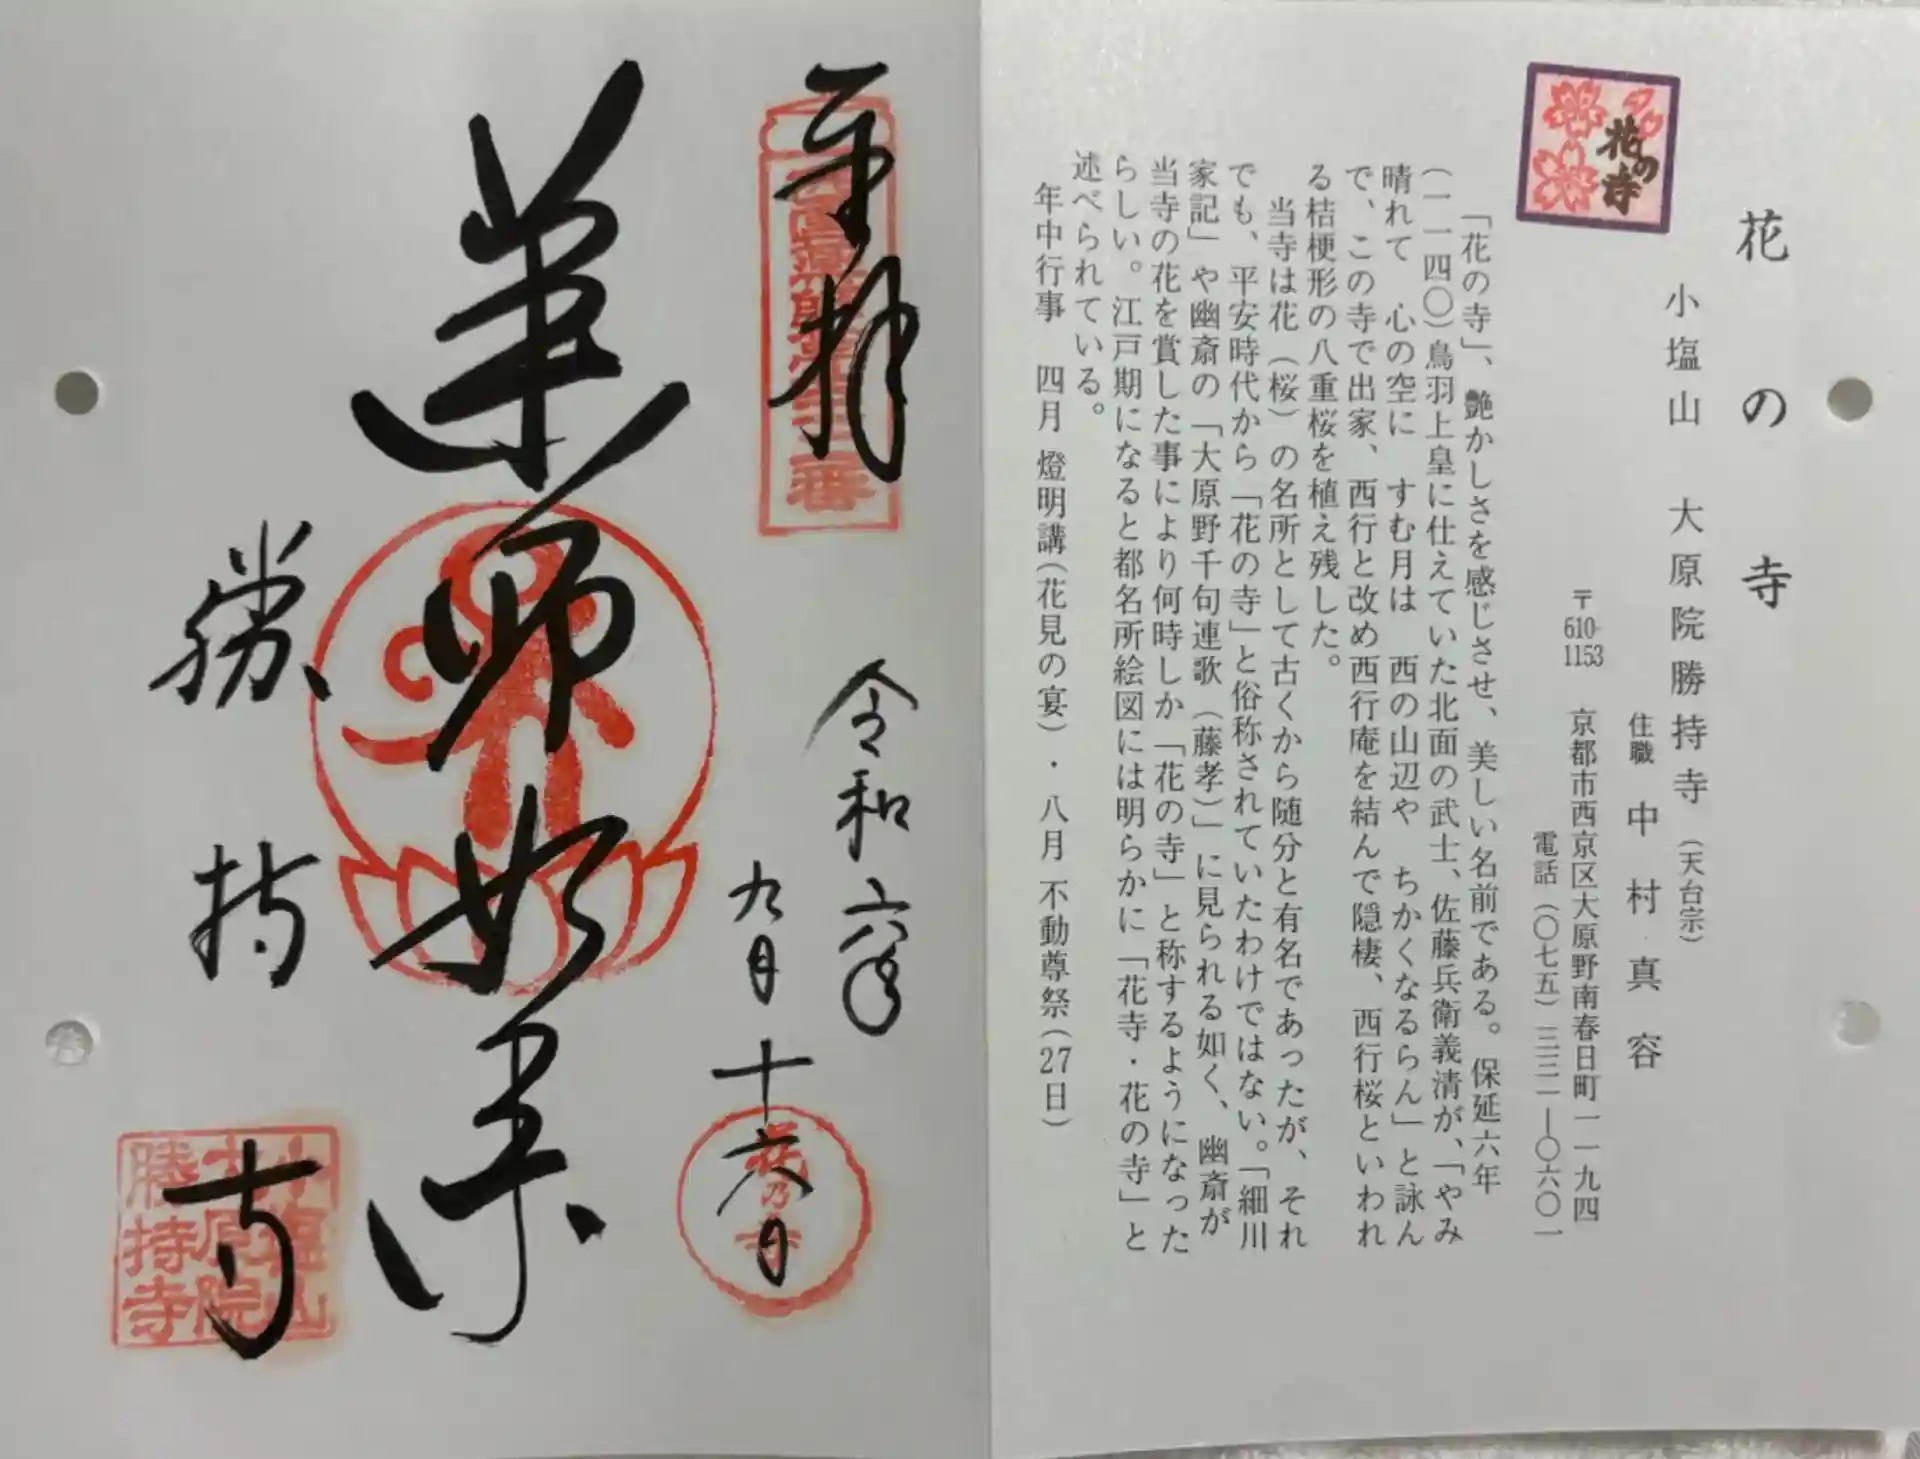 花の寺
花の寺
小塩山 大原院勝持寺(天台宗)
住職 中村真容
〒610-1153 京都市西京区大原野南春日町一一九四
電話(〇七五)三三一―〇六〇一
「花の寺」、艶かしさを感じさせ、美しい名前である。保延六年
(一一四〇)鳥羽上皇に仕えていた北面の武士、佐藤兵衛義清が、「やみ
晴れて 心の空に すむ月は 西の山辺や ちかくなるらん」と詠ん
で、この寺で出家、西行と改め西行庵を結んで隠棲、西行桜といわれ
る桔梗形の八重桜を植え残した。
当寺は花(桜)の名所として古くから随分と有名であったが、それ
でも、平安時代から「花の寺」と俗称されていたわけではない。「細川
家記」や幽斎の「大原野千句連歌(藤孝)」に見られる如く、幽斎が
当寺の花を賞した事により何時しか「花の寺」と称するようになった
らしい。江戸期になると都名所絵図には明らかに「花寺・花の寺」と
述べられている。
年中行事 四月 燈明講(花見の宴)・八月 不動尊祭(27日)
奉拝
令和六年
九月十六日
花乃寺
薬師如来
勝持寺
小塩山
大原院
勝持寺